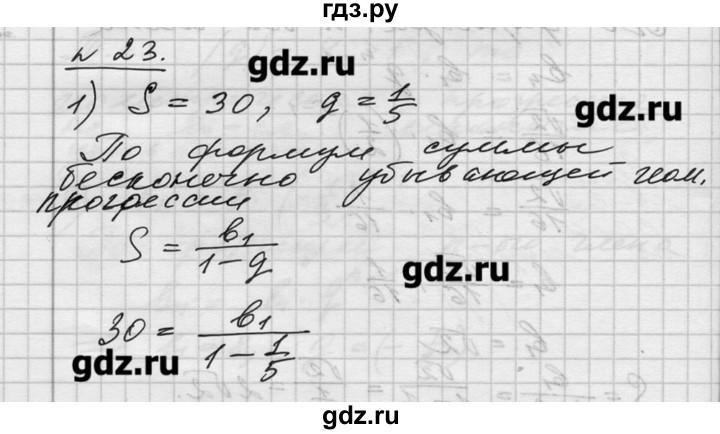 гдз.ру
№ 23.
gdz.ru
1) S = 30, q = 1/5
gdz.ru
По формул суммы
бесконечно убывающей геом.
прогрессии
S = b₁/(1 - q)
gdz.ru
30 = b₁/(1 - 1/5)
gdz.ru
gdz.ru